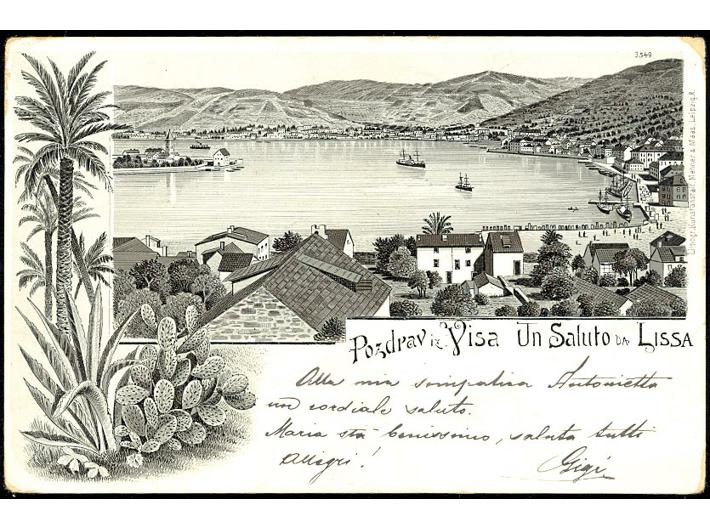 3549
Lithogr. Kunstanstalt, Menner & Maas, Leipzig R.
Pozdrav iz Visa Un Saluto da Lissa
Alla mia simpatica Antonietta
un cordiale saluto.
Maria sta benissimo, saluta tutti
Allegri!
Gigi